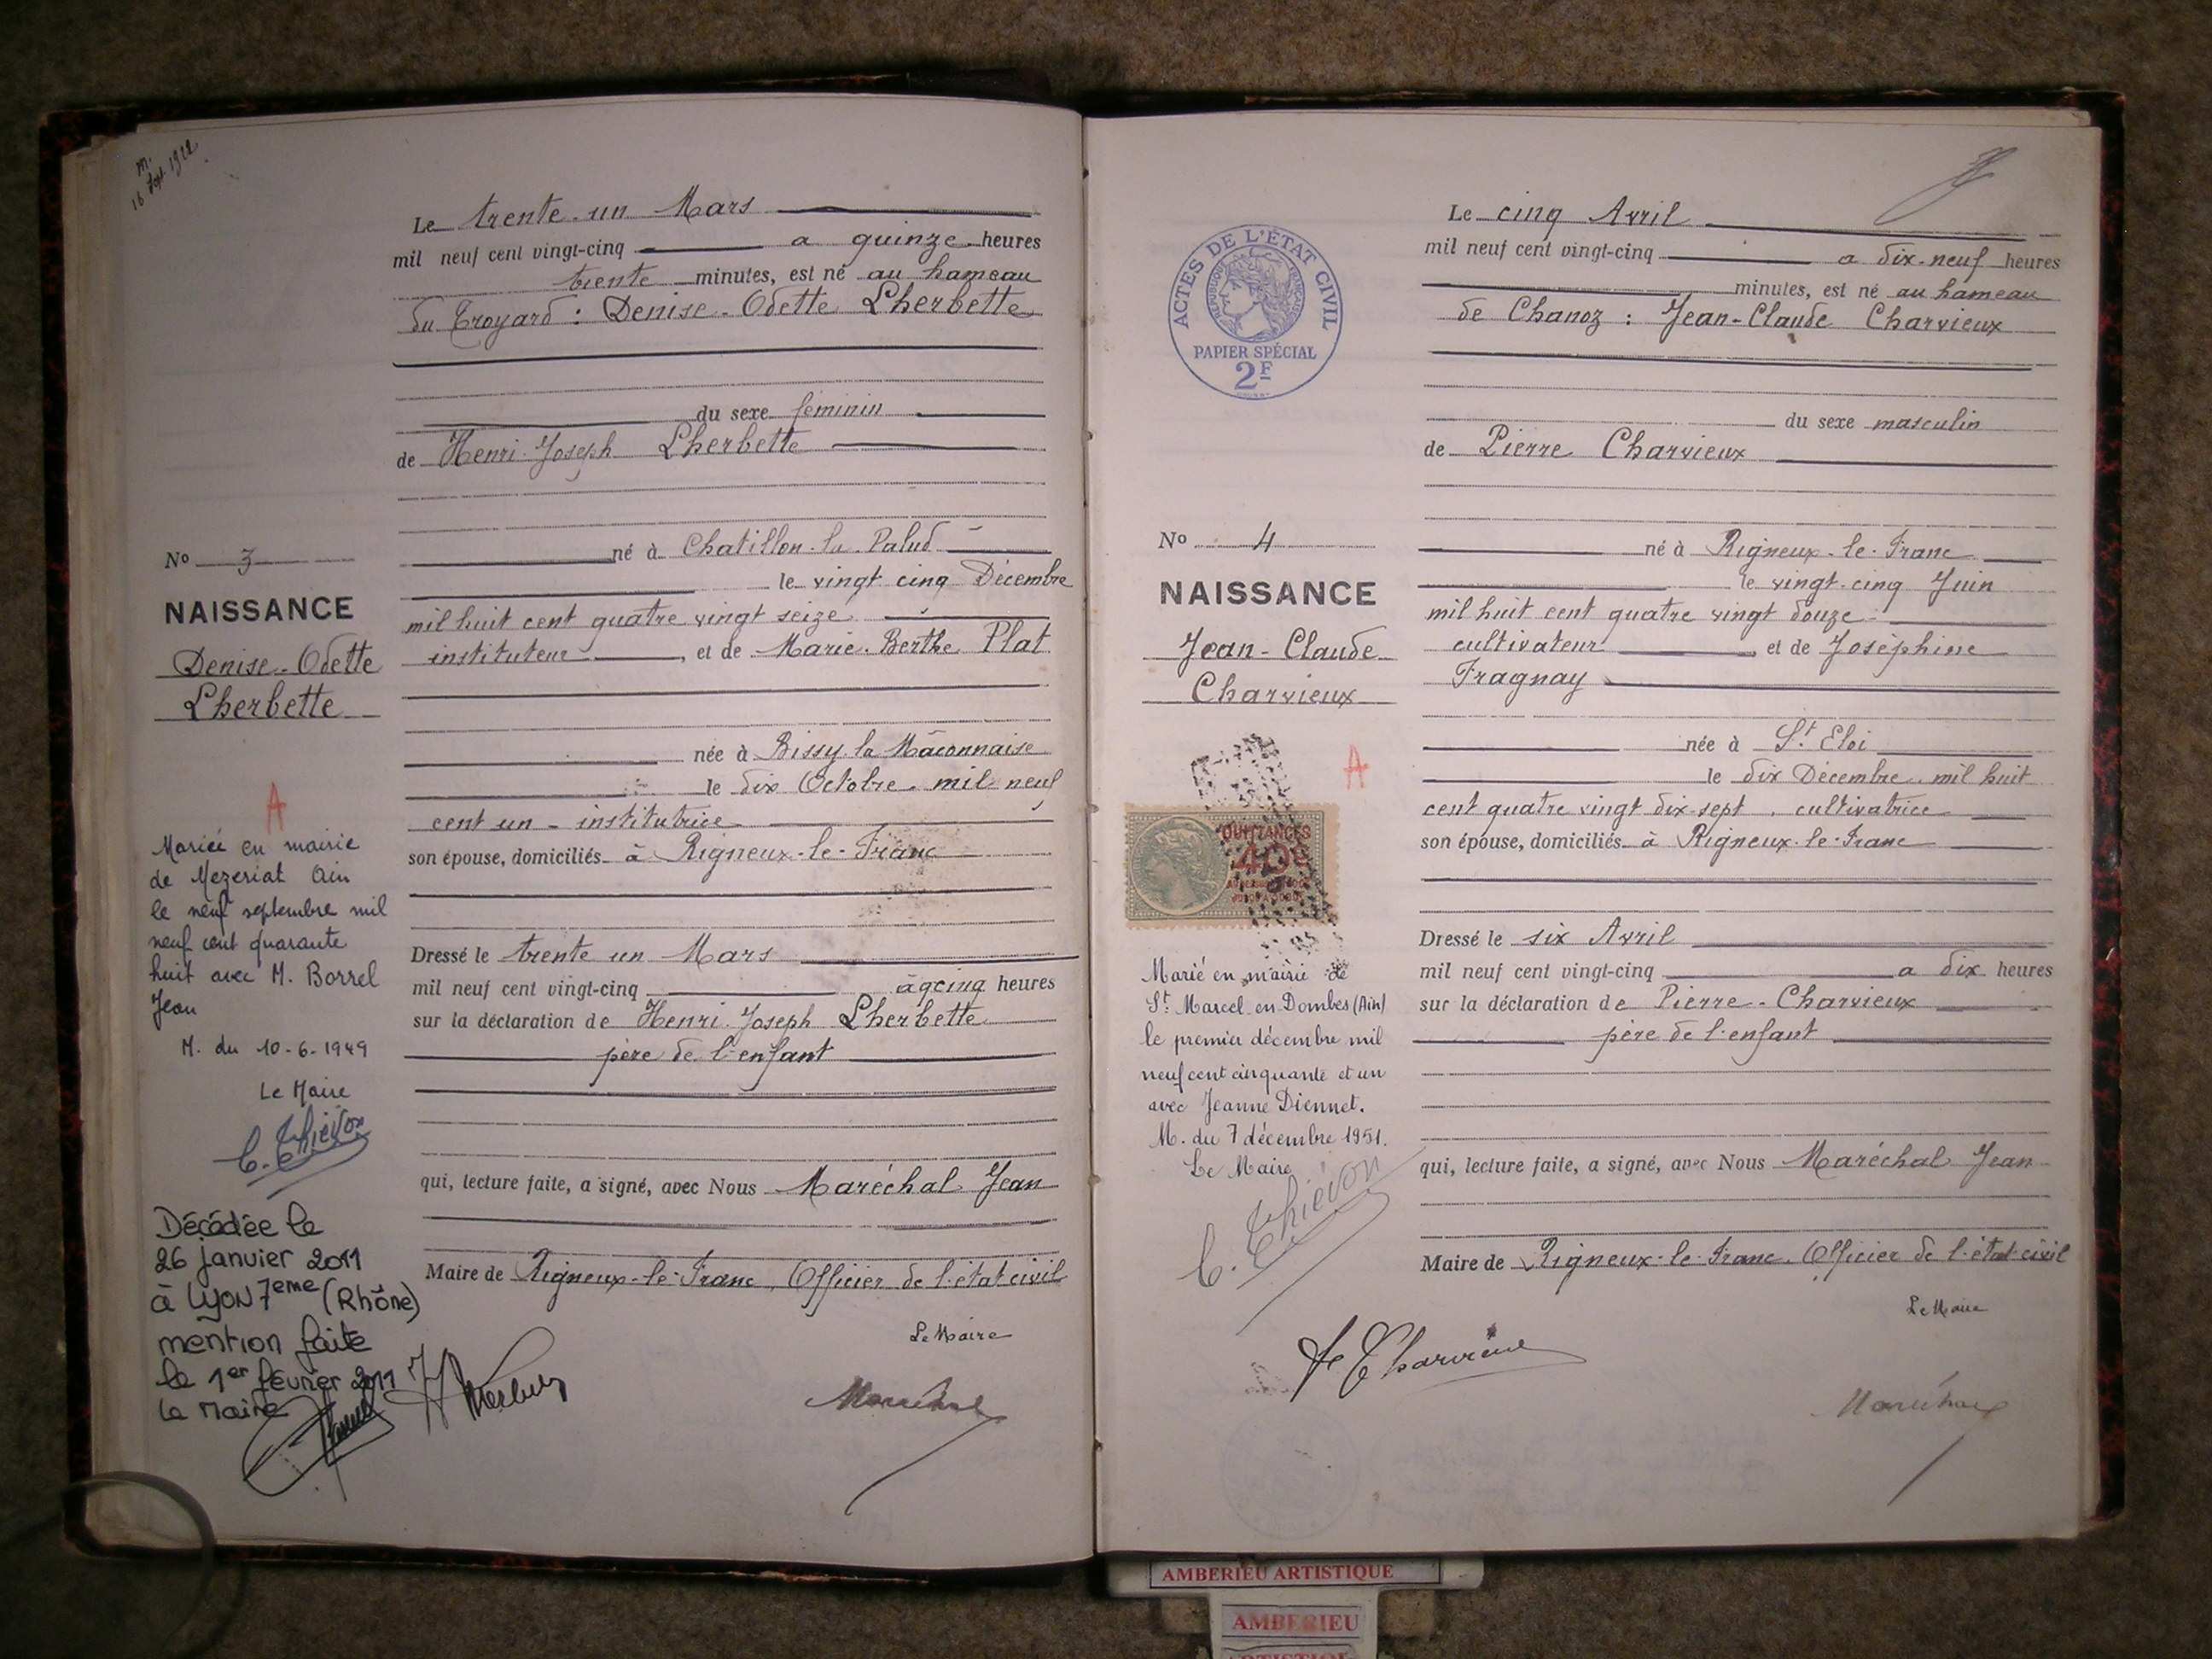 m.
16 Sept. 1912
Le trente-un Mars
mil neuf cent vingt-cinq a quinze heures
trente minutes, est né au hameau
du Croyard : Denise-Odette Lherbette
du sexe féminin
de Henri-Joseph Lherbette
né à Chatillon-la-Palud
le vingt cinq Décembre
mil huit cent quatre vingt seize
instituteur, et de Marie-Berthe Plat
née à Bissy la Mâconnaise
le dix Octobre mil neuf
cent un - institutrice
son épouse, domiciliés à Rigneux-le-Franc
Dressé le trente un Mars
mil neuf cent vingt-cinq heures
sur la déclaration de Henri-Joseph Lherbette
père de l'enfant
qui, lecture faite, a signé, avec Nous Maréchal Jean
Maire de Rigneux-le-Franc, Officier de l'état civil
Le Maire
Maréchal
No 3
NAISSANCE
Denise-Odette
Lherbette
A
Mariée en mairie
de Mezeriat Ain
le neuf septembre mil
neuf cent quarante
huit avec M. Borrel
Jean
M. du 10-6-1949
Le Maire
C. Thiévon
Décédée le
26 janvier 2011
à LYON 7eme (Rhône)
mention faite
le 1er février 2011
Le Maire
Le cinq Avril
mil neuf cent vingt-cinq a dix-neuf heures
minutes, est né au hameau
de Chanoz : Jean-Claude Charvieux
du sexe masculin
de Pierre Charvieux
né à Rigneux-le-Franc
le vingt-cinq Juin
mil huit cent quatre vingt douze
cultivateur, et de Joséphine
Fragnay
née à St Eloi
le dix Décembre mil huit
cent quatre vingt dix-sept, cultivatrice
son épouse, domiciliés à Rigneux-le-Franc
Dressé le six Avril
mil neuf cent vingt-cinq a dix heures
sur la déclaration de Pierre-Charvieux
père de l'enfant
qui, lecture faite, a signé, avec Nous Maréchal Jean
Maire de Rigneux-le-Franc. Officier de l'état civil
Le Maire
Maréchal
ACTES DE L'ÉTAT CIVIL
RÉPUBLIQUE FRANÇAISE
PAPIER SPÉCIAL
2F
No 4
NAISSANCE
Jean-Claude
Charvieux
A
QUITTANCES
40c
Marié en mairie de
St Marcel en Dombes (Ain)
le premier décembre mil
neuf cent cinquante et un
avec Jeanne Diennet.
M. du 7 décembre 1951.
Le Maire
C. Thiévon
Charvieux
AMBERIEU ARTISTIQUE
AMBERIEU
ARTISTIQUE